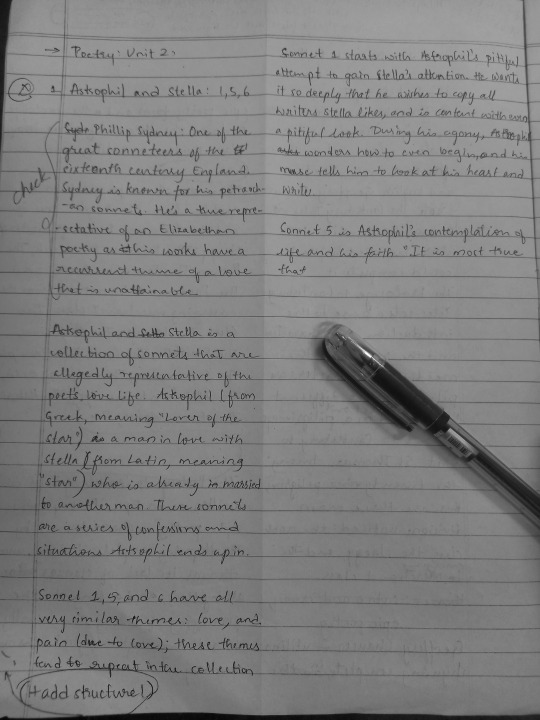 → Poetry: Unit 2:
1. Astrophil and Stella: 1,5,6
check
Phillip Sydney: One of the
great sonneteers of the
sixteenth century England.
Sydney is known for his petrarch-
-an sonnets. He's a true repre-
-setative of an Elizabethan
poetry as this works have a
recurrent theme of a love
that is unattainable
Astrophil and Stella is a
collection of sonnets that are
allegedly representative of the
poet's love life. Astrophil (from
Greek, meaning "Lover of the
star") is a man in love with
Stella (from Latin, meaning
"star") who is already married
to another man. These sonnets
are a series of confessions and
situations Astrophil ends up in.
Sonnet 1, 5, and 6 have all
very similar themes: love, and
pain (due to love); these themes
tend to repeat in the collection
+add structure!
Sonnet 1 starts with Astrophil's pitiful
attempt to gain Stella's attention. He wants
it so deeply that he wishes to copy all
writers Stella likes, and is content with even
a pitiful look. During his agony, Astrophil
wonders how to even begin, and his
muse tells him to look at his heart and
write,
Sonnet 5 is Astrophil's contemplation of
life and his faith "It is most true
that